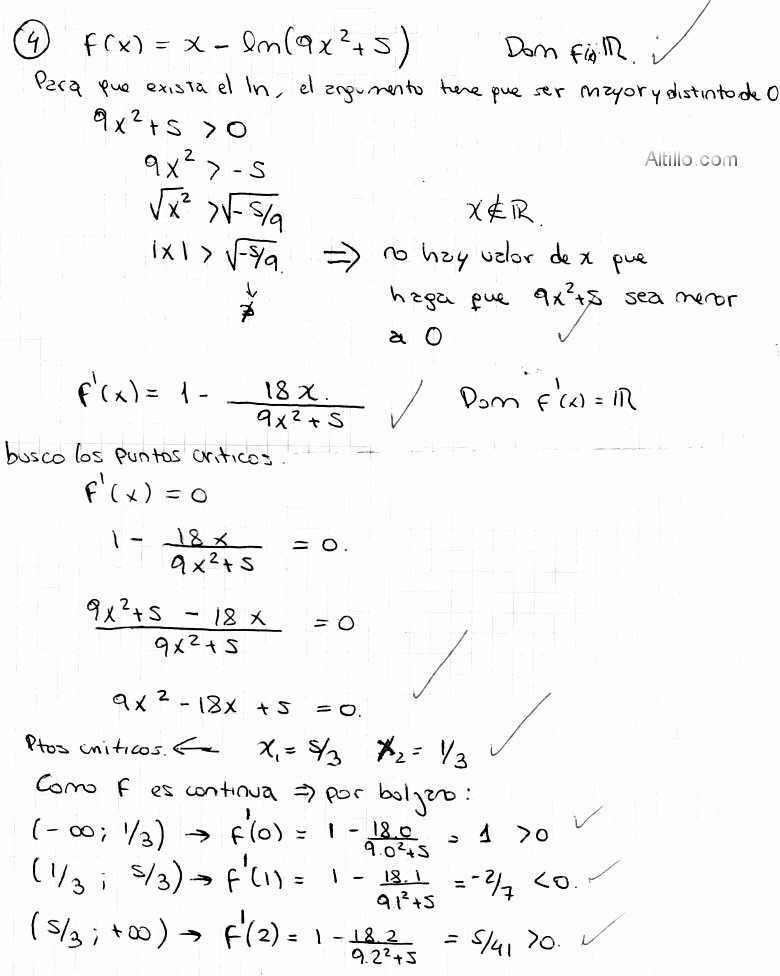 ④ f(x) = x - ln(9x²+5) Dom f(x): ℝ. ✓
Para que exista el ln, el argumento tiene que ser mayor y distinto de 0
9x²+5 > 0
9x² > -5
Altillo.com
√x² > √-5/9 x∉ℝ.
|x| > √-5/9. ⇒ no hay valor de x que
↓ haga que 9x²+5 sea menor
∄ a 0 ✓
f'(x) = 1 - 18x. / 9x²+5 ✓ Dom f'(x) = ℝ
busco los puntos criticos.
f'(x) = 0
1 - 18x / 9x²+5 = 0.
9x²+5 - 18x / 9x²+5 = 0
9x² - 18x + 5 = 0. ✓
Ptos criticos. ← x₁ = 5/3 x₂ = 1/3 ✓
Como f es continua ⇒ por bolzano:
(-∞; 1/3) → f'(0) = 1 - 18.0 / 9.0²+5 = 1 > 0 ✓
(1/3; 5/3) → f'(1) = 1 - 18.1 / 9 1²+5 = -2/7 < 0. ✓
(5/3; +∞) → f'(2) = 1 - 18.2 / 9.2²+5 = 5/41 > 0. ✓